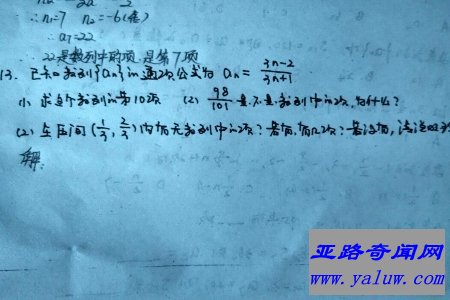 ∴ n₁=7 n₂=-6(舍)
∴ a₇=22
∴ 22是数列中的项,是第7项
13. 已知数列{an}的通项公式为 an = (3n-2)/(3n+1)
(1) 求这个数列的第10项 (2) 98/101 是不是数列中的项,为什么?
(2) 在区间(1/3, 2/3)内有无数列中的项?若有,有几项?若没有,请说明
解:
亚路奇闻网
www.yaluw.com